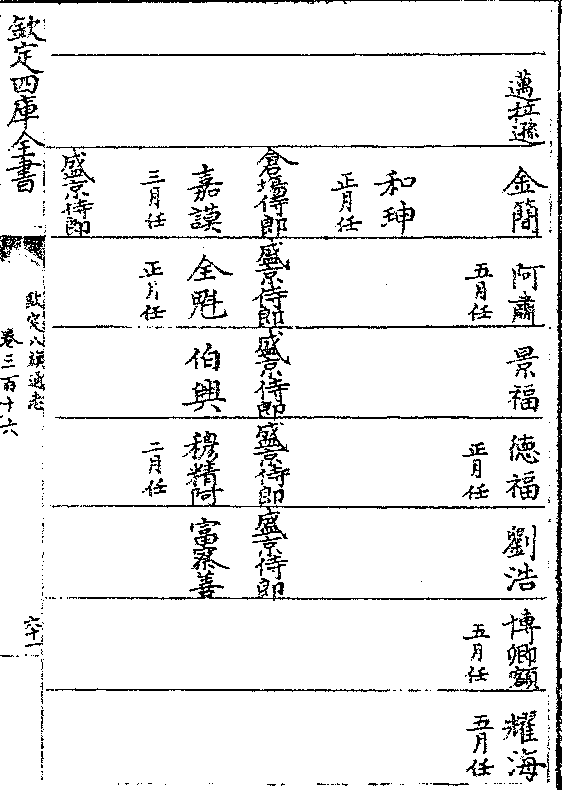 邁拉遜 金簡 阿肅 景福 德福 劉浩 博卿額 耀海
五月任 正月任 五月任 五月任
和珅
正月任
倉場侍郎 盛京侍郎 盛京侍郎 盛京侍郎 盛京侍郎
嘉謨 全魁 伯興 穆精阿 富察善
三月任 正月任 二月任
盛京侍郎
欽定四庫全書
欽定八旗通志
卷三百十六
六十一